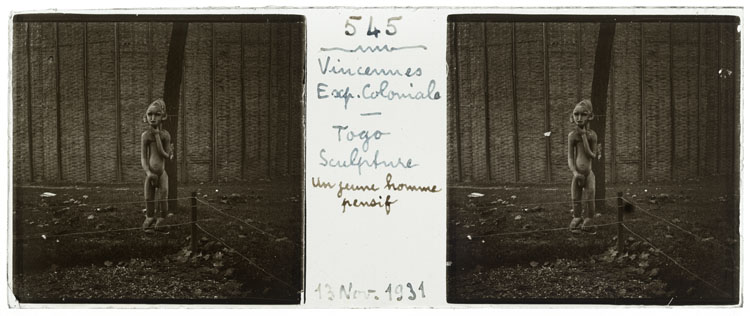 545
Vincennes
Exp. Coloniale
Togo
Sculpture
un jeune homme
pensif
13 Nov. 1931